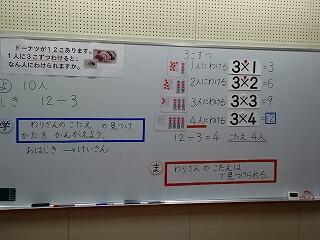 ドーナツが12こあります。
1人に3こずつわけると、
なん人にわけられますか。
よ 10人
しき 12÷3
学 わりざんのこたえ の見つけ
かたを かんがえよう。
おはじき →けいさん
3こずつ
1人にわける 3×1=3
2人にわける 3×2=6
3人にわける 3×3=9
4人にわける 3×4=12
12÷3=4 こたえ 4人
ま わりざんのこたえは
で見つけられる。